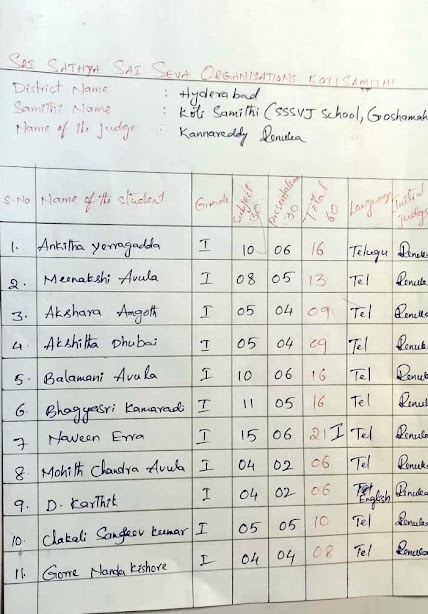 SRI SATHYA SAI SEVA ORGANISATIONS. KOTI SAMITHI
District Name : Hyderabad
Samithi Name : Koti Samithi (SSSVJ School, Goshamah
Name of the judge : Kannareddy Renuka
S.No Name of the student Grade Subject 30 Presentation 30 Total 60 Language Initial Judge
1. Ankitha yerragadda I 10 06 16 Telugu Renuka
2. Meenakshi Avula I 08 05 13 Tel Renuka
3. Akshara Amgoth I 05 04 09 Tel Renuka
4. Akshitha Dhubai I 05 04 09 Tel Renuk
5. Balamani Avula I 10 06 16 Tel Renuk
6. Bhagyasri Kamaradi I 11 05 16 Tel Renuka
7 Naveen Erra I 15 06 21 I Tel Renuka
8. Mohith Chandra Avula I 04 02 06 Tel Renuk
9. D. Karthik I 04 02 06 English Renuka
10. Chakali Sangeev kumar I 05 05 10 Tel Renuka
11. Gorre Nanda kishore I 04 04 08 Tel Renuka